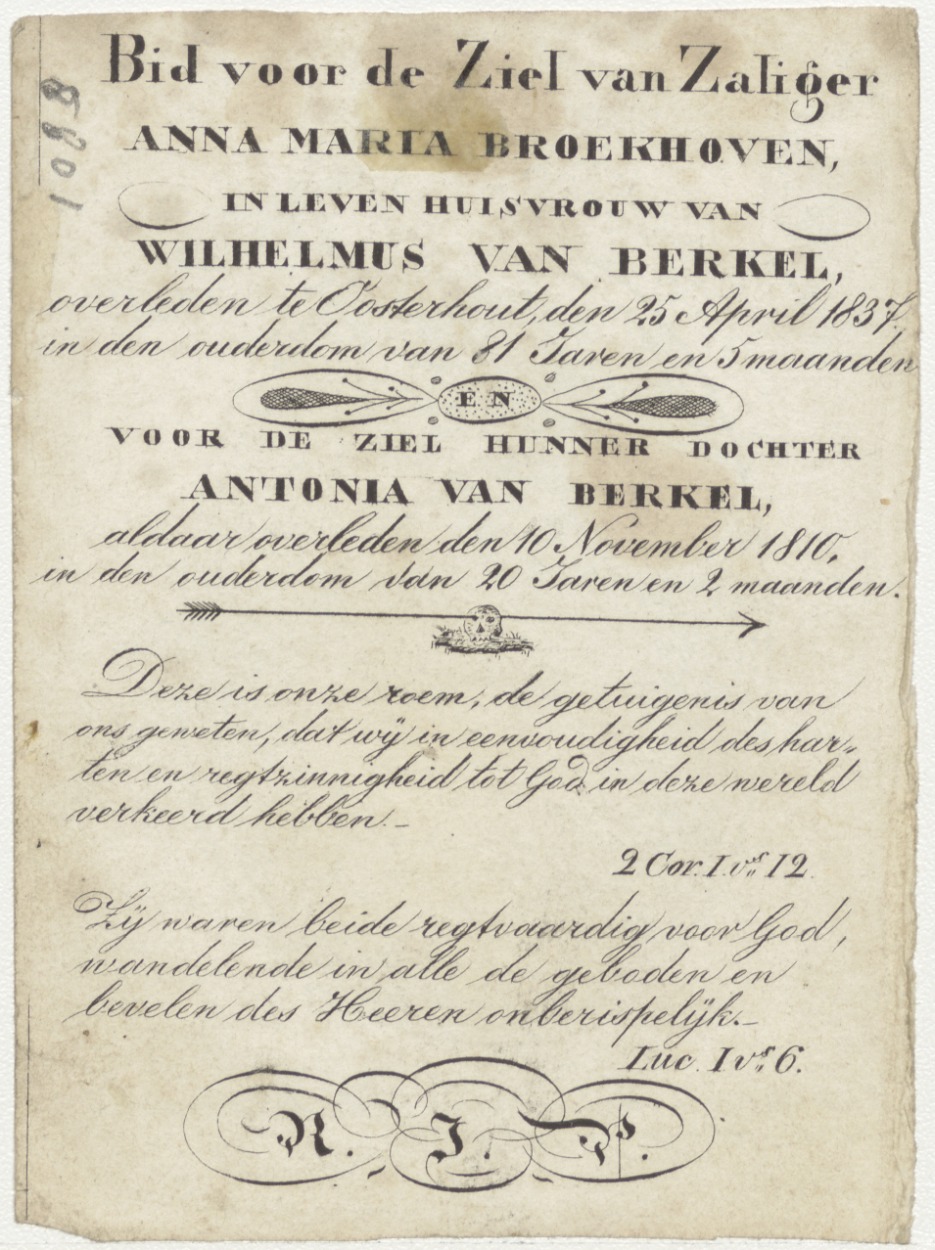 Bid voor de Ziel van Zaliger
ANNA MARIA BROEKHOVEN,
IN LEVEN HUISVROUW VAN
WILHELMUS VAN BERKEL,
overleden te Oosterhout, den 25 April 1837,
in den ouderdom van 81 Jaren en 5 maanden
EN
VOOR DE ZIEL HUNNER DOCHTER
ANTONIA VAN BERKEL,
aldaar overleden den 10 November 1810,
in den ouderdom van 20 Jaren en 2 maanden.
Deze is onze roem, de getuigenis van
ons geweten, dat wij in eenvoudigheid des har-
ten en regtzinnigheid tot God in deze wereld
verkeerd hebben.—
2 Cor. I vs. 12.
Zij waren beide regtvaardig voor God,
wandelende in alle de geboden en
bevelen des Heeren onberispelijk.—
Luc. I vs. 6.
R. I. P.
1088